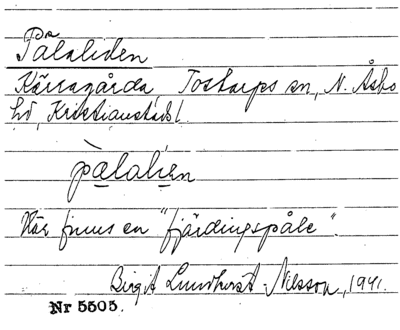 Pålaliden
Kärragårda, Tostarps sn, N. Åsbo
hd, Kristianstads l.
pàlali̵en
Här finns en "fjärdingspåle".
Birgit Lundkvist-Nilsson, 1941.
Nr 5505.